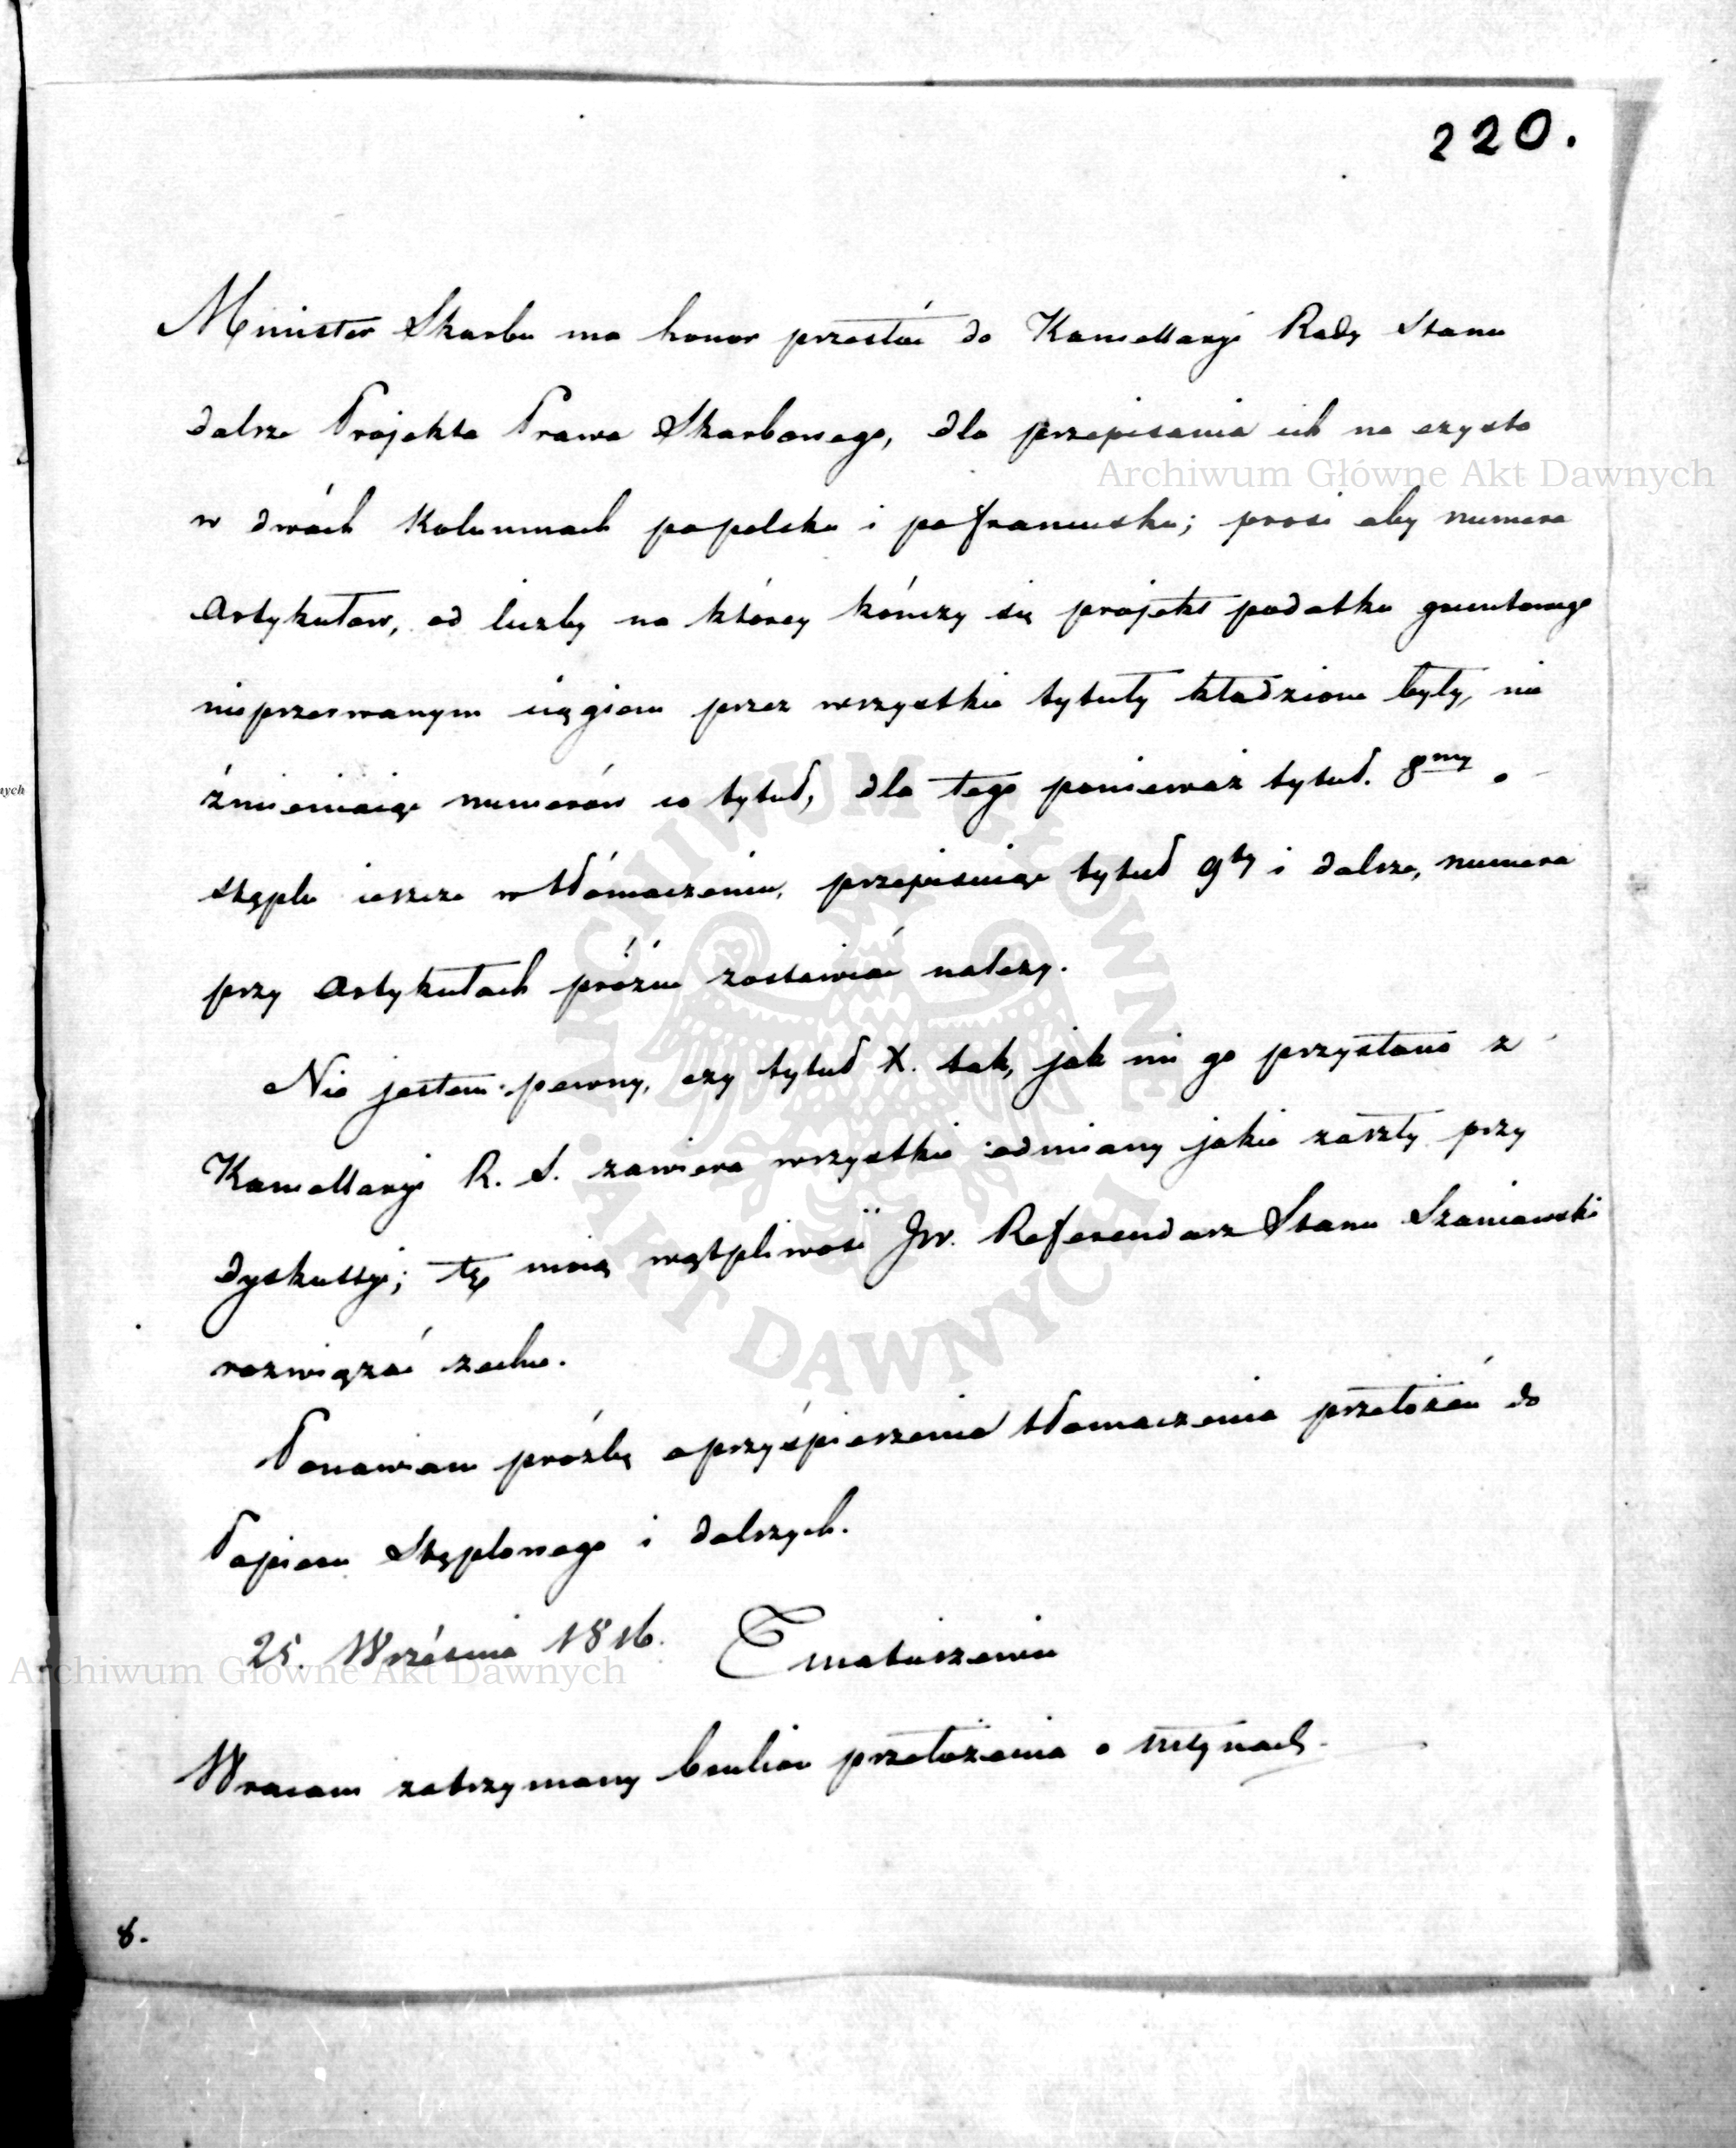 220.
Minister Skarbu ma honor przesłać do Kancellaryi Rady Stanu
dalsze Projekta Prawa Skarbowego, dla przepisania ich na czysto
Archiwum Główne Akt Dawnych
w dwóch Kolumnach popolsku i pofrancusku; prosi aby numera
Artykułow, od liczby na którey kończy się projekt podatku gruntowego
nieprzerwanym ciągiem przez wszystkie tytuły kładzione były, nie
źmieniaiąc numerów co tytuł, dla tego ponieważ tytuł. 8my o
stęplu ieszcze w tłómaczeniu, przepisuiąc tytuł 9ty i dalsze, numera
przy Artykułach próżne zostawiać należy.
Nie jestem pewny, czy tytuł X. tak, jak mi go przysłano z
Kancellaryi R. S. zawiera wszystkie odmiany jakie zaszły przy
dyskussyi; tę moią wątpliwość JW. Referendarz Stanu Szaniawski
rozwiązać zechce.
Ponawiam próźbę o przyśpieszenie tłomaczenia przełożeń do
Papieru Stęplowego i dalszych.
25. Września 1816. TMatuszewic
Archiwum Główne Akt Dawnych
Wracam zatrzymany brulion przełożenia o młynach.
8.
ARCHIWUM GŁÓWNE AKT DAWNYCH
nych